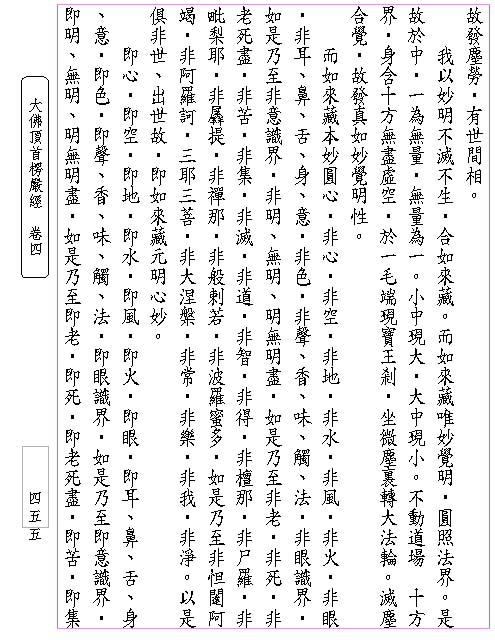 故發塵勞，有世間相。
我以妙明不滅不生，合如來藏。而如來藏唯妙覺明，圓照法界。是
故於中，一為無量，無量為一。小中現大，大中現小。不動道場　十方
界，身含十方無盡虛空，於一毛端現寶王剎，坐微塵裏轉大法輪。滅塵
合覺，故發真如妙覺明性。
而如來藏本妙圓心，非心，非空，非地，非水，非風，非火，非眼
，非耳、鼻、舌、身、意，非色，非聲、香、味、觸、法，非眼識界，
如是乃至非意識界，非明、無明、明無明盡，如是乃至非老，非死，非
老死盡，非苦，非集，非滅，非道，非智，非得，非檀那，非尸羅，非
毗梨耶，非羼提，非禪那，非般剌若，非波羅蜜多，如是乃至非怛闥阿
竭，非阿羅訶，三耶三菩，非大涅槃，非常，非樂，非我，非淨。以是
俱非世、出世故，即如來藏元明心妙。
即心，即空，即地，即水，即風，即火，即眼，即耳、鼻、舌、身
、意，即色，即聲、香、味、觸、法，即眼識界，如是乃至即意識界，
即明、無明、明無明盡，如是乃至即老，即死，即老死盡，即苦，即集
大佛頂首楞嚴經　卷四
四五五